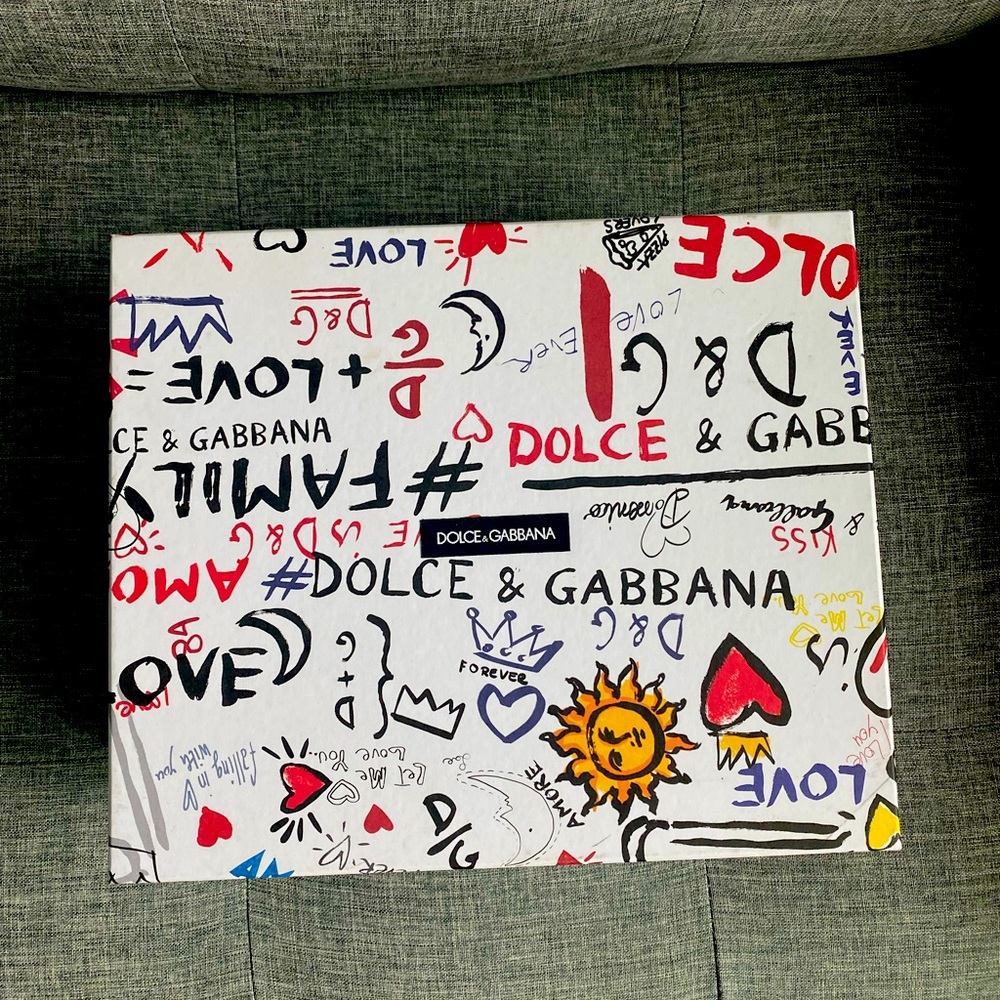 LOVE
PIZZA
LOVERS
OLCE
D&G
LOVE
EVER
D&G
D
G
= LOVE +
D & G
CE & GABBANA
DOLCE & GABB
#FAMILY
Domenico
Gabbana
&
KISS
E IS D&G
DOLCE&GABBANA
AMO
#DOLCE & GABBANA
Let Me
Love You...
D&G
OVE
G+D
FOREVER
love
falling in
with you
Let Me
Love You...
AMORE
LOVE
I LOVE
you
D/G